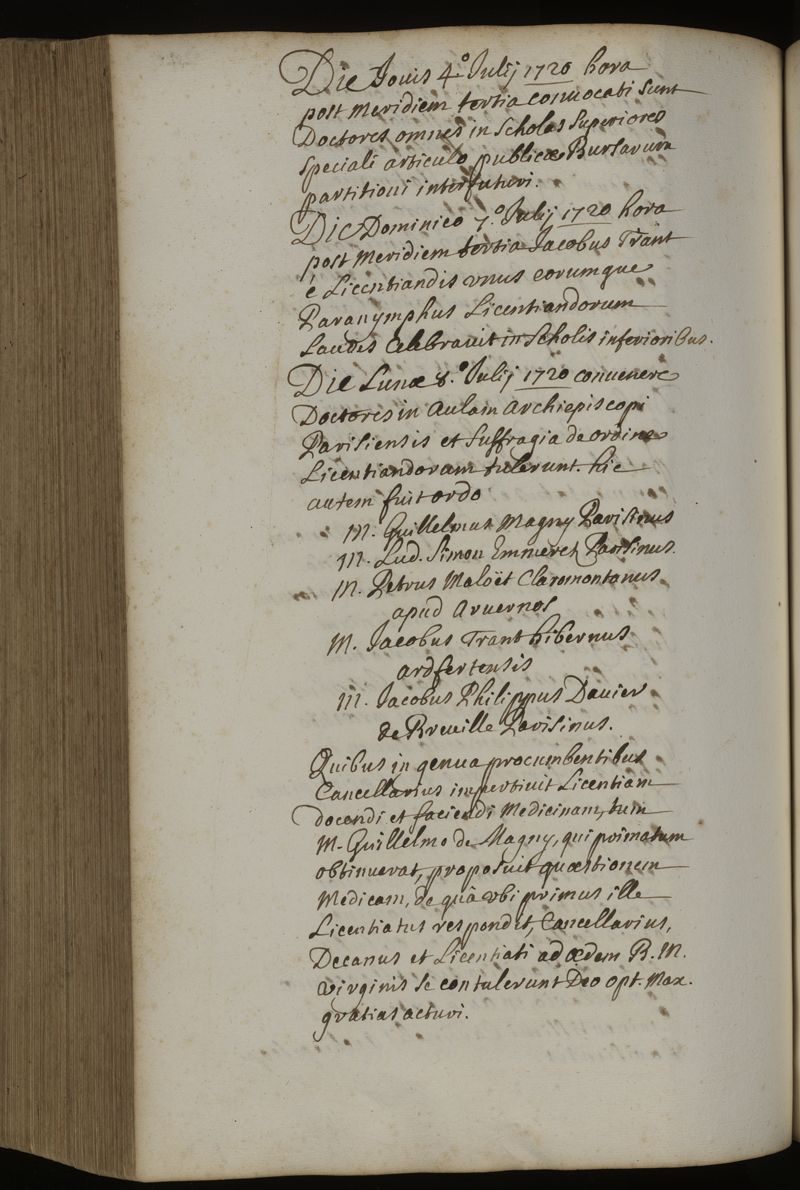 Die Jovis 4.º Julij 1720 hora
post Meridiem tertia convocati sunt
Doctores omnes in Scholas Superiores
speciali articulo, publicæ Bursarum
partitioni interfuturi.
Die Dominico 7.º Julij 1720 hora
post Meridiem tertia Jacobus Trant
è Licentiandis unus eorumque
Paranymphus Licentiandorum
Laudes Celebravit in Scholis inferioribus.
Die Lunæ 8.º Julij 1720 convenere
Doctores in Aulam Archiepiscopi
Parisiensis et suffragia de ordine
Licentiandorum tulerunt. hic
autem fuit ordo
M. Guillelmus Magny Parisinus
M. Lud. Simon Emmerez Parisinus.
M. Petrus Maloët Claromontanus
apud Arvernos
M. Jacobus Trant hibernus
ardfertensis
M. Jacobus Philippus Davier
de Breuille Parisinus.
Quibus in genua procumbentibus
Cancellarius impertivit Licentiam
docendi et faciendi Medicinam, tum
M. Guillelmo de Magny, qui primatum
obtinuerat, proposuit quæstionem
Medicam, de quâ ubi primus ille
Licentiatus respondit, Cancellarius,
Decanus et Licentiati ad ædem B. M.
Virginis se contulerunt Deo opt. Max.
gratias acturi.